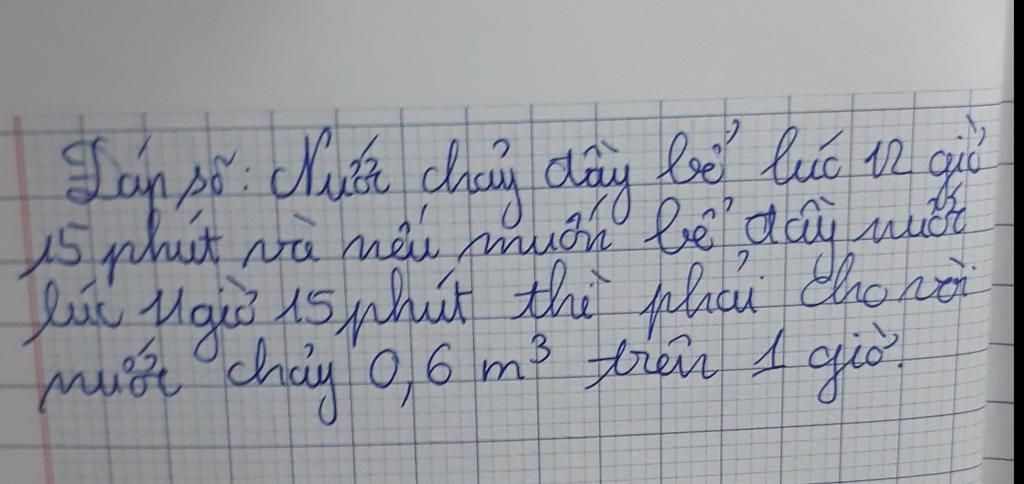 Đáp số: Nước chảy đầy bể lúc 12 giờ
15 phút và nếu muốn bể đầy nước
lúc 11 giờ 15 phút thì phải cho vòi
nước chảy 0,6 m³ trên 1 giờ.